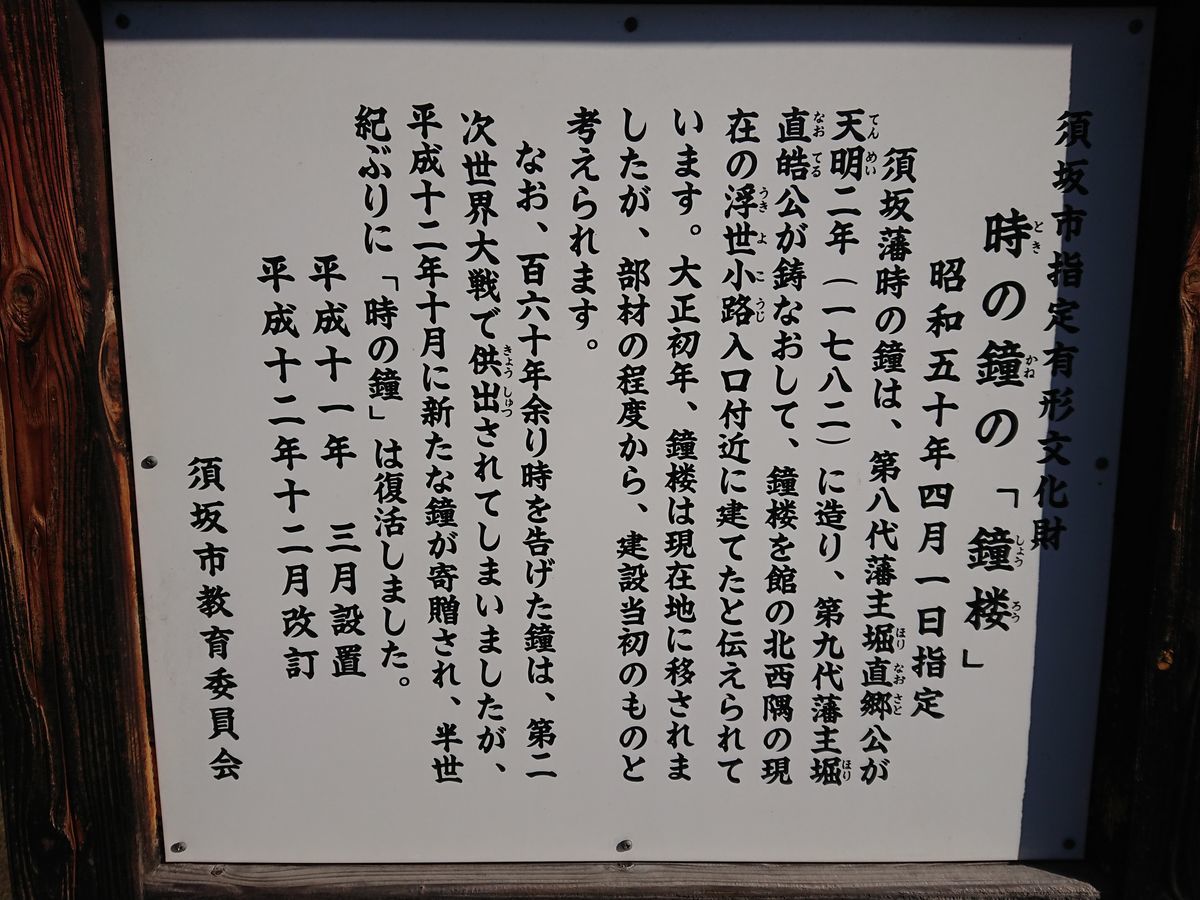 須坂市指定有形文化財
時の鐘の「鐘楼」
昭和五十年四月一日指定
須坂藩時の鐘は、第八代藩主堀直郷公が
天明二年（一七八二）に造り、第九代藩主堀
直皓公が鋳なおして、鐘楼を館の北西隅の現
在の浮世小路入口付近に建てたと伝えられて
います。大正初年、鐘楼は現在地に移されま
したが、部材の程度から、建設当初のものと
考えられます。
なお、百六十年余り時を告げた鐘は、第二
次世界大戦で供出されてしまいましたが、
平成十二年十月に新たな鐘が寄贈され、半世
紀ぶりに「時の鐘」は復活しました。
平成十一年　三月設置
平成十二年十二月改訂
須坂市教育委員会